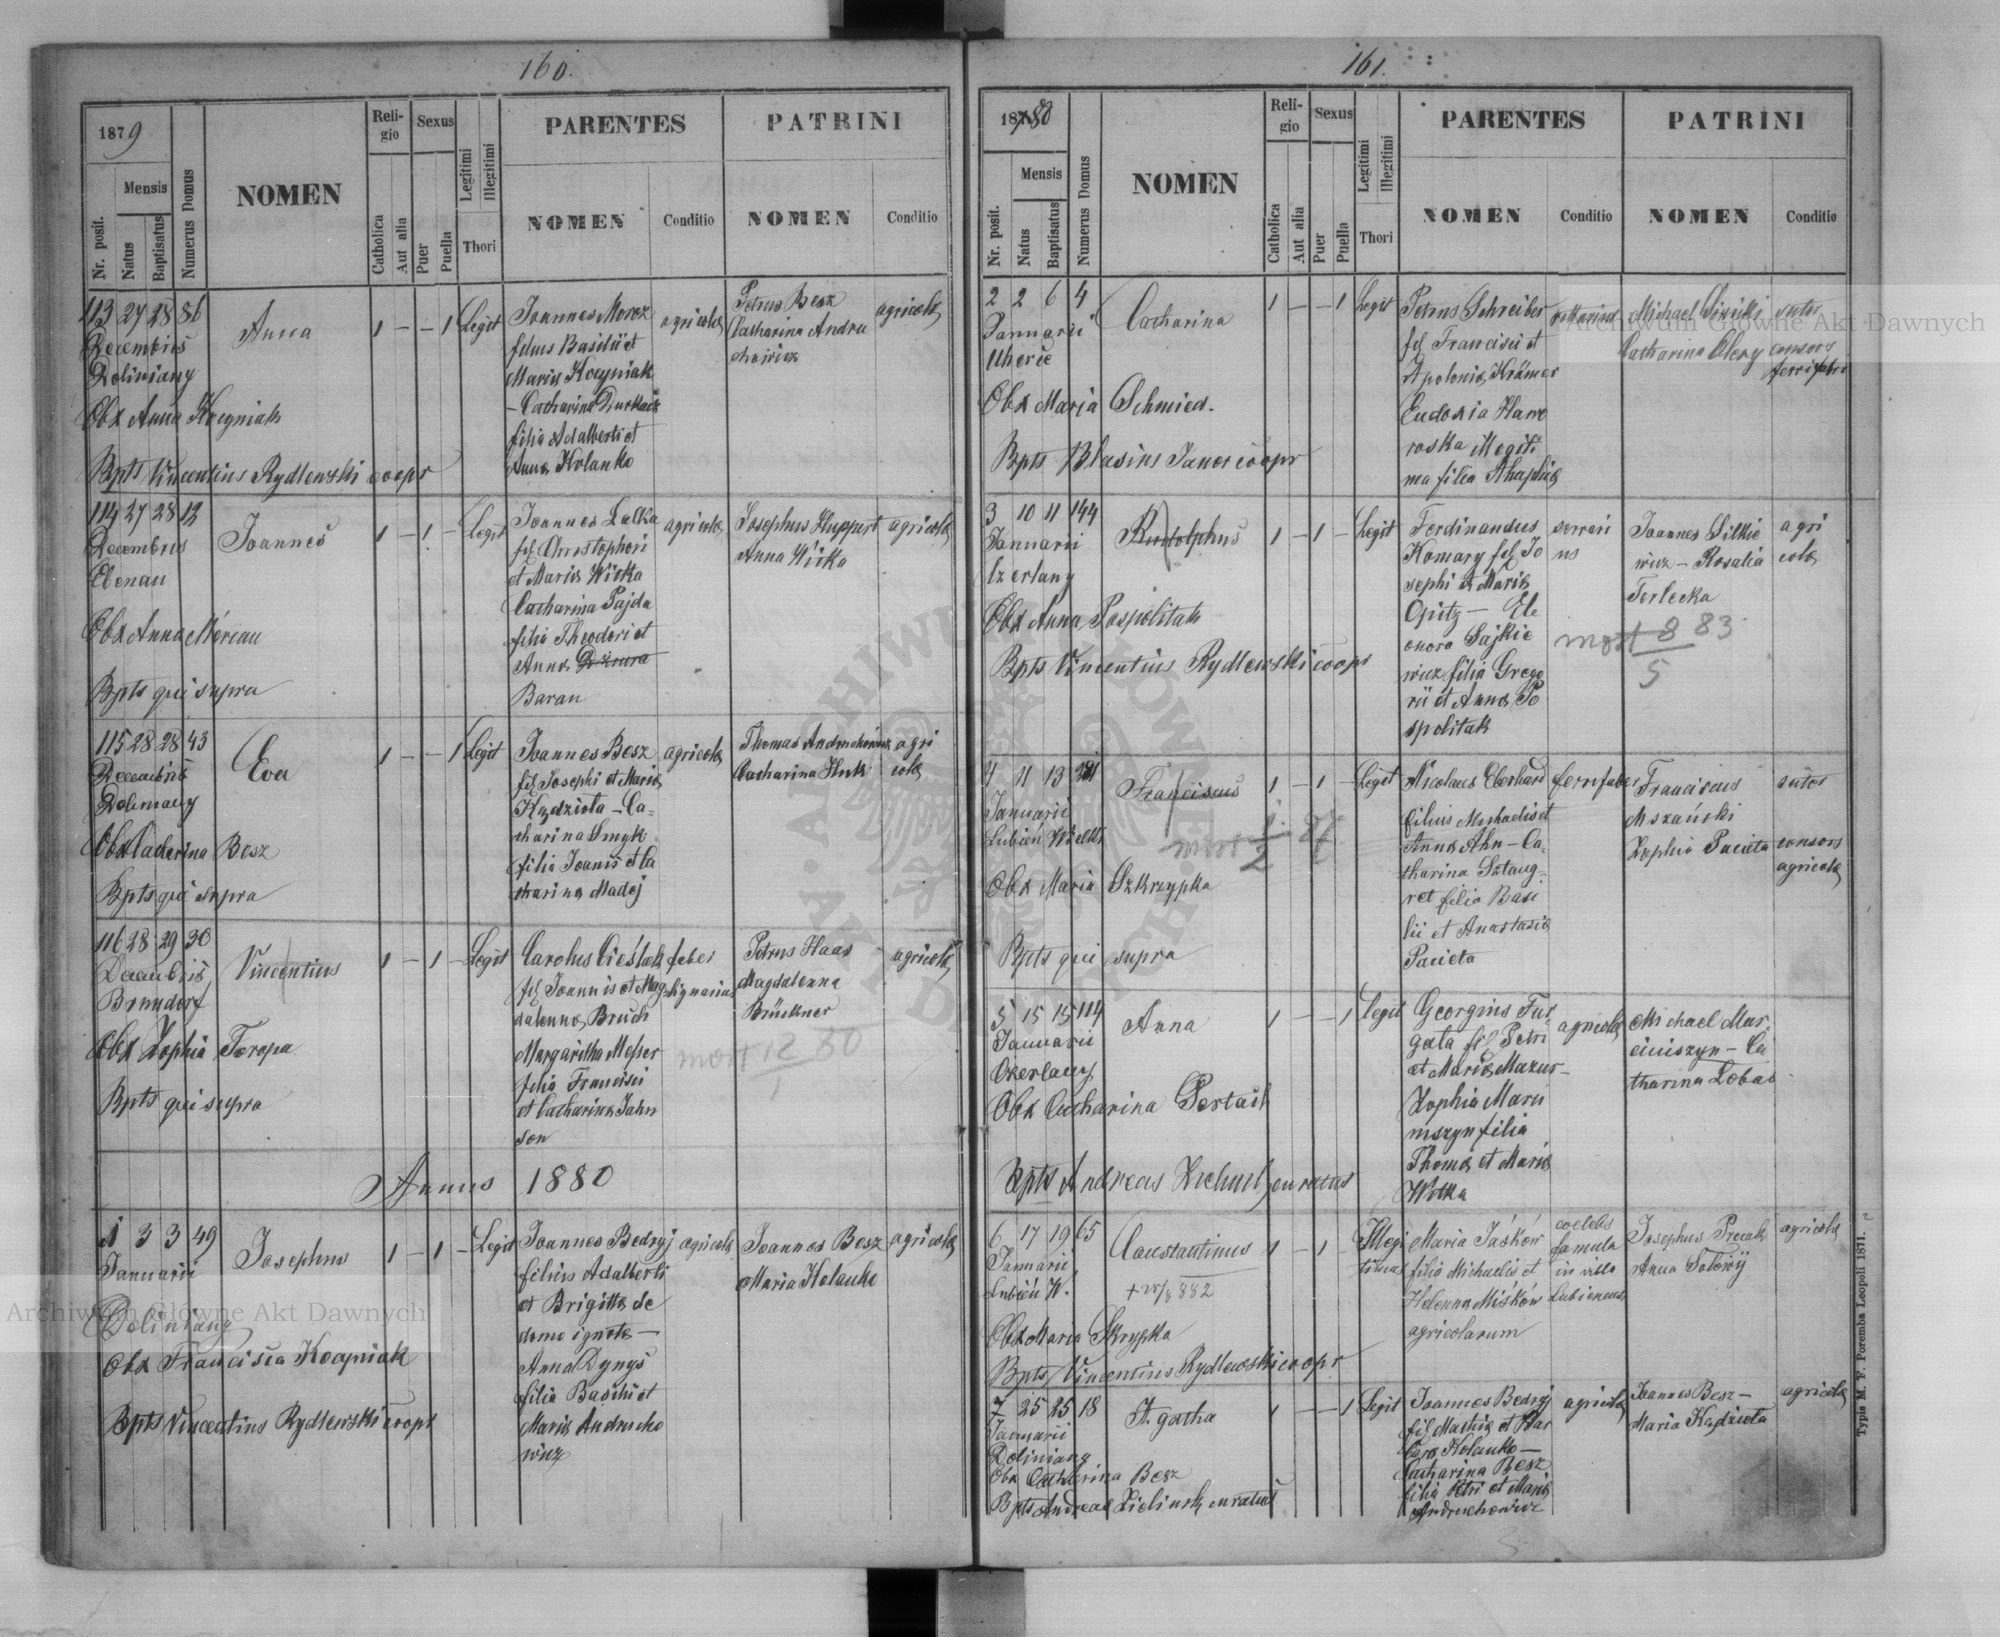 160.
1879
Nr. posit.
Mensis
Natus
Baptisatus
Numerus Domus
NOMEN
Religio
Catholica
Aut alia
Sexus
Puer
Puella
Legitimi
Illegitimi
Thori
PARENTES
NOMEN
Conditio
PATRINI
NOMEN
Conditio
113 27 28 86
Decembris
Doliniany
Anna
1 – – 1 Legit
Joannes Moroz
filius Basilii et
Maria Kocyniak
– Catharina
filia Adalberti et
Anna Kolanko
agricola
Petrus Besz
Catharina Andru
chowicz
agricola
Obx Anna Kocyniak
Bpts Vincentius Rydlewski coopr
114 27 28 13
Decembris
Ebenau
Joannes
1 – 1 – Legit
Joannes Lalka
fil Christophori
et Maria Wiska
Catharina Pajda
filia Theodori et
Anna
Baran
agricola
Josephus Huppert
Anna Wiska
agricola
Obx Anna Moreau
Bpts qui supra
115 28 28 43
Decembris
Doliniany
Eva
1 – – 1 Legit
Joannes Besz
fil Josephi et Maria
Kędziota – Ca-
tharina Smyk
filia Joanis et Ca
tharina Madej
agricola
Thomas Andruchowicz
Catharina Huk
agri
cola
Obx Catherina Besz
Bpts qui supra
116 28 29 30
Decembris
Brundorf
Vincentius
1 – 1 – Legit
Carolus Cieślak
fil Joannis et Mag
dalenna Bruch
Margaritha Messer
filia Francisci
et Catharina Jahn
son
faber
lignarius
Petrus Haas
Magdalenna
Brückner
agricola
mort 12/1 80
Obx Zophia Toropa
Bpts qui supra
Annus 1880
1 3 3 49
Januarii
Doliniany
Josephus
1 – 1 – Legit
Joannes Bedryj
filius Adalberti
et Brigitta de
domo ignota –
Anna Dynys
filia Basilii et
Maria Andrucho
wicz
agricola
Joannes Besz
Maria Kolanko
agricola
Obx Francisca Kocyniak
Bpts Vincentius Rydlewski coopr
161.
1880
Nr. posit.
Mensis
Natus
Baptisatus
Numerus Domus
NOMEN
Religio
Catholica
Aut alia
Sexus
Puer
Puella
Legitimi
Illegitimi
Thori
PARENTES
NOMEN
Conditio
PATRINI
NOMEN
Conditio
2 2 6 4
Januarii
Uherce
Catharina
1 – – 1 Legit
Petrus Schreiber
fil Francisci et
Apolonia Krämer
Eudoxia Haw
roska illegiti
ma filia
Michael
Catharina
sutor
consors
ferrifabri
Obx Maria Schmied.
Bpts Blasius Janor coopr
3 10 11 144
Januarii
Czerlany
Rudolphus
1 – 1 – Legit
Ferdinandus
Komary fil Jo
sephi et Maria
Opitz – Ele
onora Sajkie
wicz filia Grego
rii et Anna Po
spolitak
serrari
us
Joannes
wicz – Rosalia
Terlecka
agri
cola
mort 8/5 83
Obx Anna Pospolitak
Bpts Vincentius Rydlewski coopr
4 11 13 281
Januarii
Lubień Wielki
Franciscus
1 – 1 – Legit
Nicolaus Eberhard
filius Michaelis et
Anna Ahn – Ca-
tharina Sztang-
ret filia Basi
lii et Anastasia
Pacieta
ferrifaber
Franciscus
Mszański
Zophia Pacieta
sutor
consors
agricola
Obx Maria Szkrzypka
Bpts qui supra
5 15 15 114
Januarii
Czerlany
Anna
1 – – 1 Legit
Georgius Fur-
gata fil Petri
et Maria Mazur –
Zophia Marci
niszyn filia
Thoma et Maria
Wotka
agricola
Michael Mar-
ciniszyn – Ca
tharina Lobas
Obx Catharina Pertail
Bpts Andreas Zielinsk curatus
6 17 19 65
Januarii
Lubień W.
Constantinus
1 – 1 – Illegi
timus
Maria Jaśków
filia Michaelis et
Helenna Miśków
agricolarum
coelebs
famula
in villa
Lubienensi
Josephus Procak
Anna Sołowij
agricola
Obx Maria Skrypka
Bpts Vincentius Rydlewski coopr
7 25 25 18
Januarii
Doliniany
Agatha
1 – – 1 Legit
Joannes Bedryj
fil Mathia et Bar
bara Kolanko –
Catharina Besz
filia Petri et Maria
Andruchowicz
agricola
Joannes Besz –
Maria Kędziota
agricola
Obx Catharina Besz
Bpts Andreas Zielinsk curatus
Typis M. F. Poremba Leopoli 1871.
Archiwum Główne Akt Dawnych
Archiwum Główne Akt Dawnych